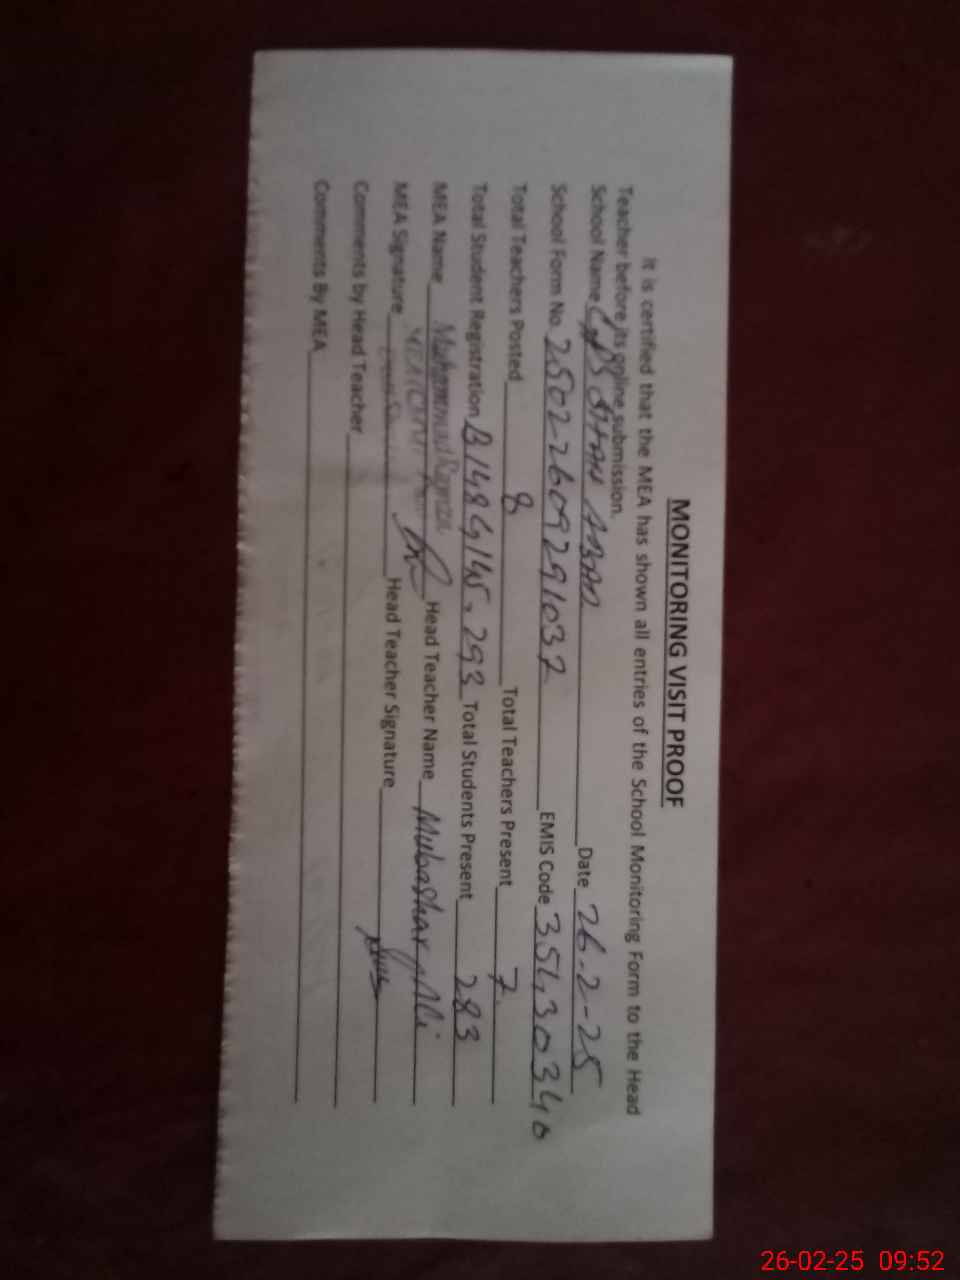 MONITORING VISIT PROOF
It is certified that the MEA has shown all entries of the School Monitoring Form to the Head
Teacher before its online submission.
School Name Date 26-2-25
School Form No. 25022609291037 EMIS Code 35430340
Total Teachers Posted 8 Total Teachers Present 7
Total Student Registration B148G145, 293 Total Students Present 283
MEA Name Muhammad Head Teacher Name Mubashar Ali
MEA Signature Head Teacher Signature
Comments by Head Teacher
Comments By MEA
26-02-25 09:52